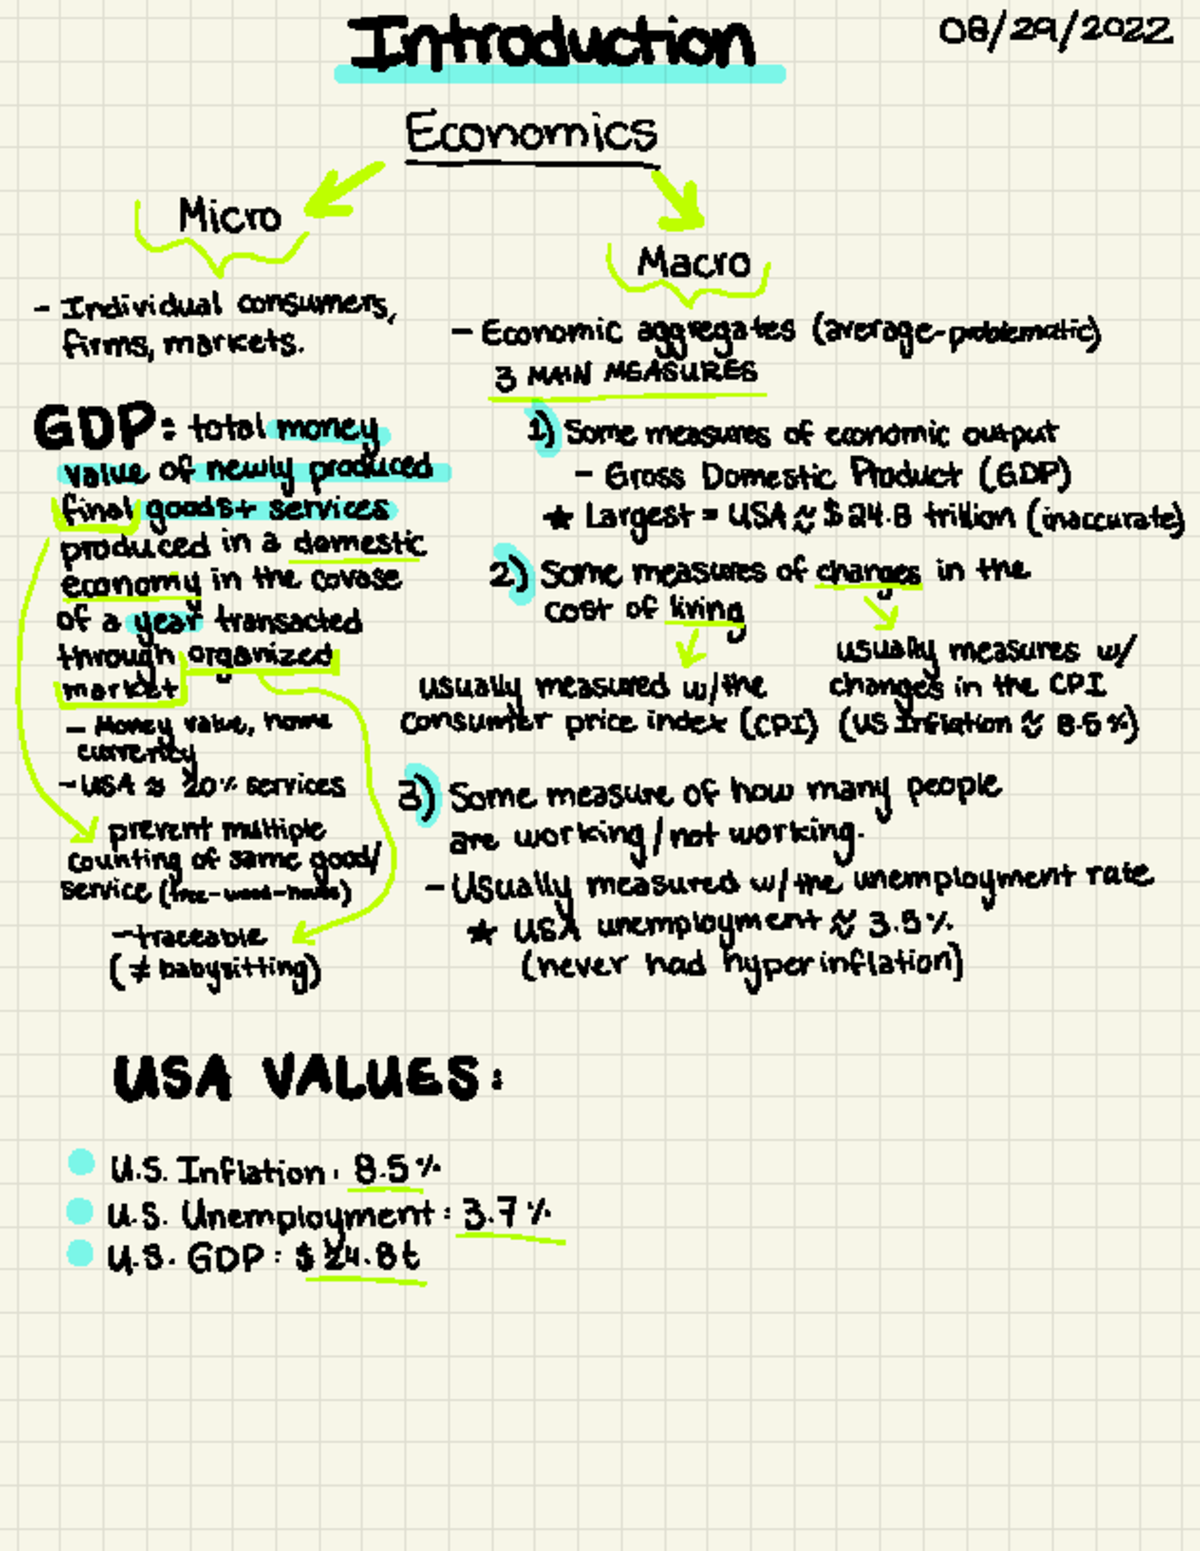 Introduction
08/29/2022
Economics
Micro
- Individual consumers,
firms, markets.
Macro
- Economic aggregates (average-problematic)
3 MAIN MEASURES
1) Some measures of economic output
- Gross Domestic Product (GDP)
★ Largest = USA ≈ $24.8 trillion (inaccurate)
2) Some measures of changes in the
cost of living
usually measured w/the
consumer price index (CPI)
usually measures w/
changes in the CPI
(US Inflation ≈ 8.5%)
3) Some measure of how many people
are working/not working.
- Usually measured w/the unemployment rate
★ USA unemployment ≈ 3.5%
(never had hyperinflation)
GDP: total money
value of newly produced
final goods+ services
produced in a domestic
economy in the covase
of a year transacted
through organized
market
- Money value, home
currency
- USA ≈ 20% services
prevent multiple
counting of same good/
service (tree-wood-house)
- traceable
(≠ babysitting)
USA VALUES:
U.S. Inflation: 8.5%
U.S. Unemployment: 3.7%
U.S. GDP: $24.8t